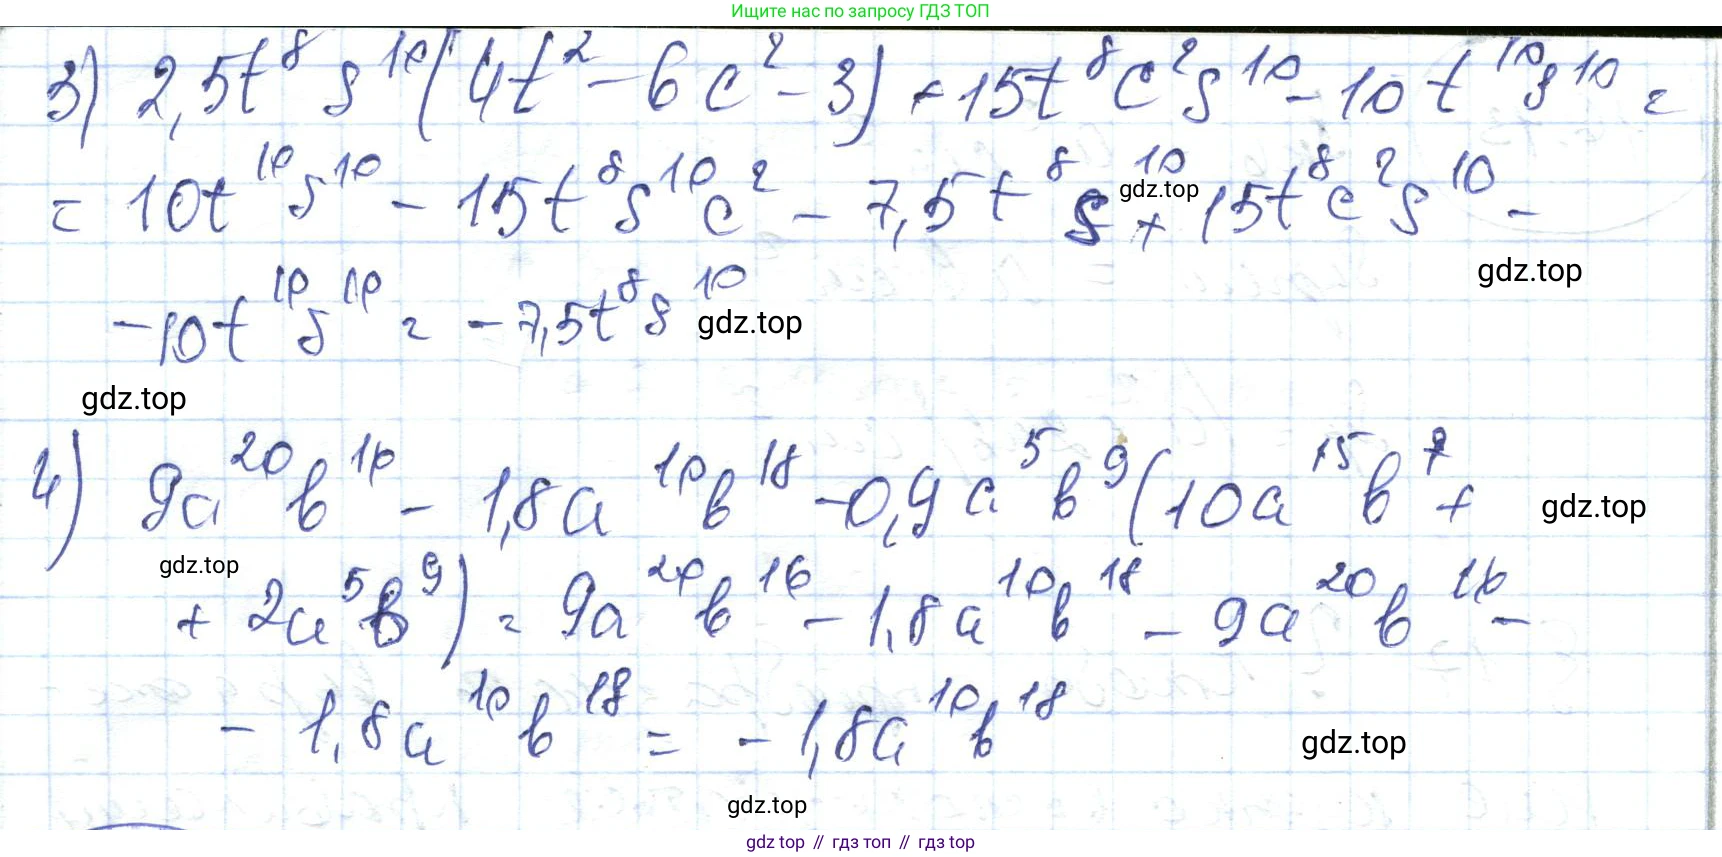 Ищите нас по запросу ГДЗ ТОП
3) 2,5t⁸s¹⁰(4t² - 6c² - 3) + 15t⁸c²s¹⁰ - 10t¹⁰s¹⁰ =
= 10t¹⁰s¹⁰ - 15t⁸s¹⁰c² - 7,5t⁸s¹⁰ + 15t⁸c²s¹⁰ -
gdz.top
gdz.top
- 10t¹⁰s¹⁰ = - 7,5t⁸s¹⁰
gdz.top
gdz.top
4) 9a²⁰b¹⁶ - 1,8a¹⁰b¹⁸ - 0,9a⁵b⁹(10a¹⁵b⁷ +
gdz.top
gdz.top
+ 2a⁵b⁹) = 9a²⁰b¹⁶ - 1,8a¹⁰b¹⁸ - 9a²⁰b¹⁶ -
- 1,8a¹⁰b¹⁸ = - 1,8a¹⁰b¹⁸
gdz.top
gdz.top
gdz top // гдз топ // гдз top